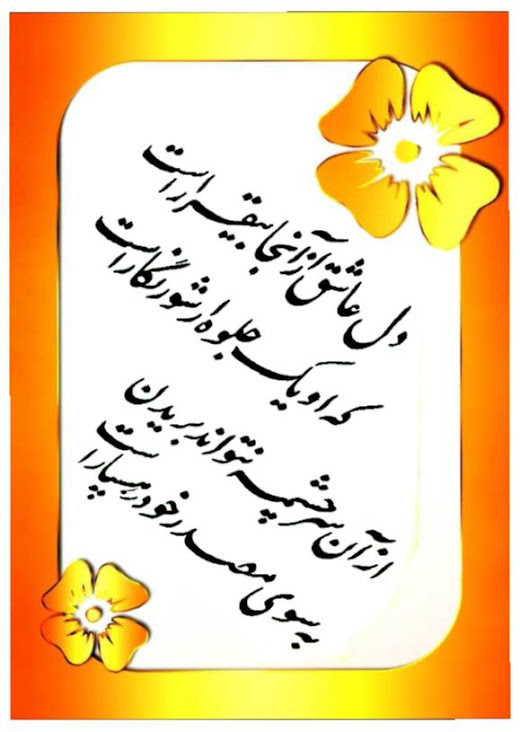 دل عاشق از آنجا بیقرار است
که او یک جلوه از شور نگار است
از آن سرچشمه نتواند بریدن
به سوی مصدر خود رهسپار است